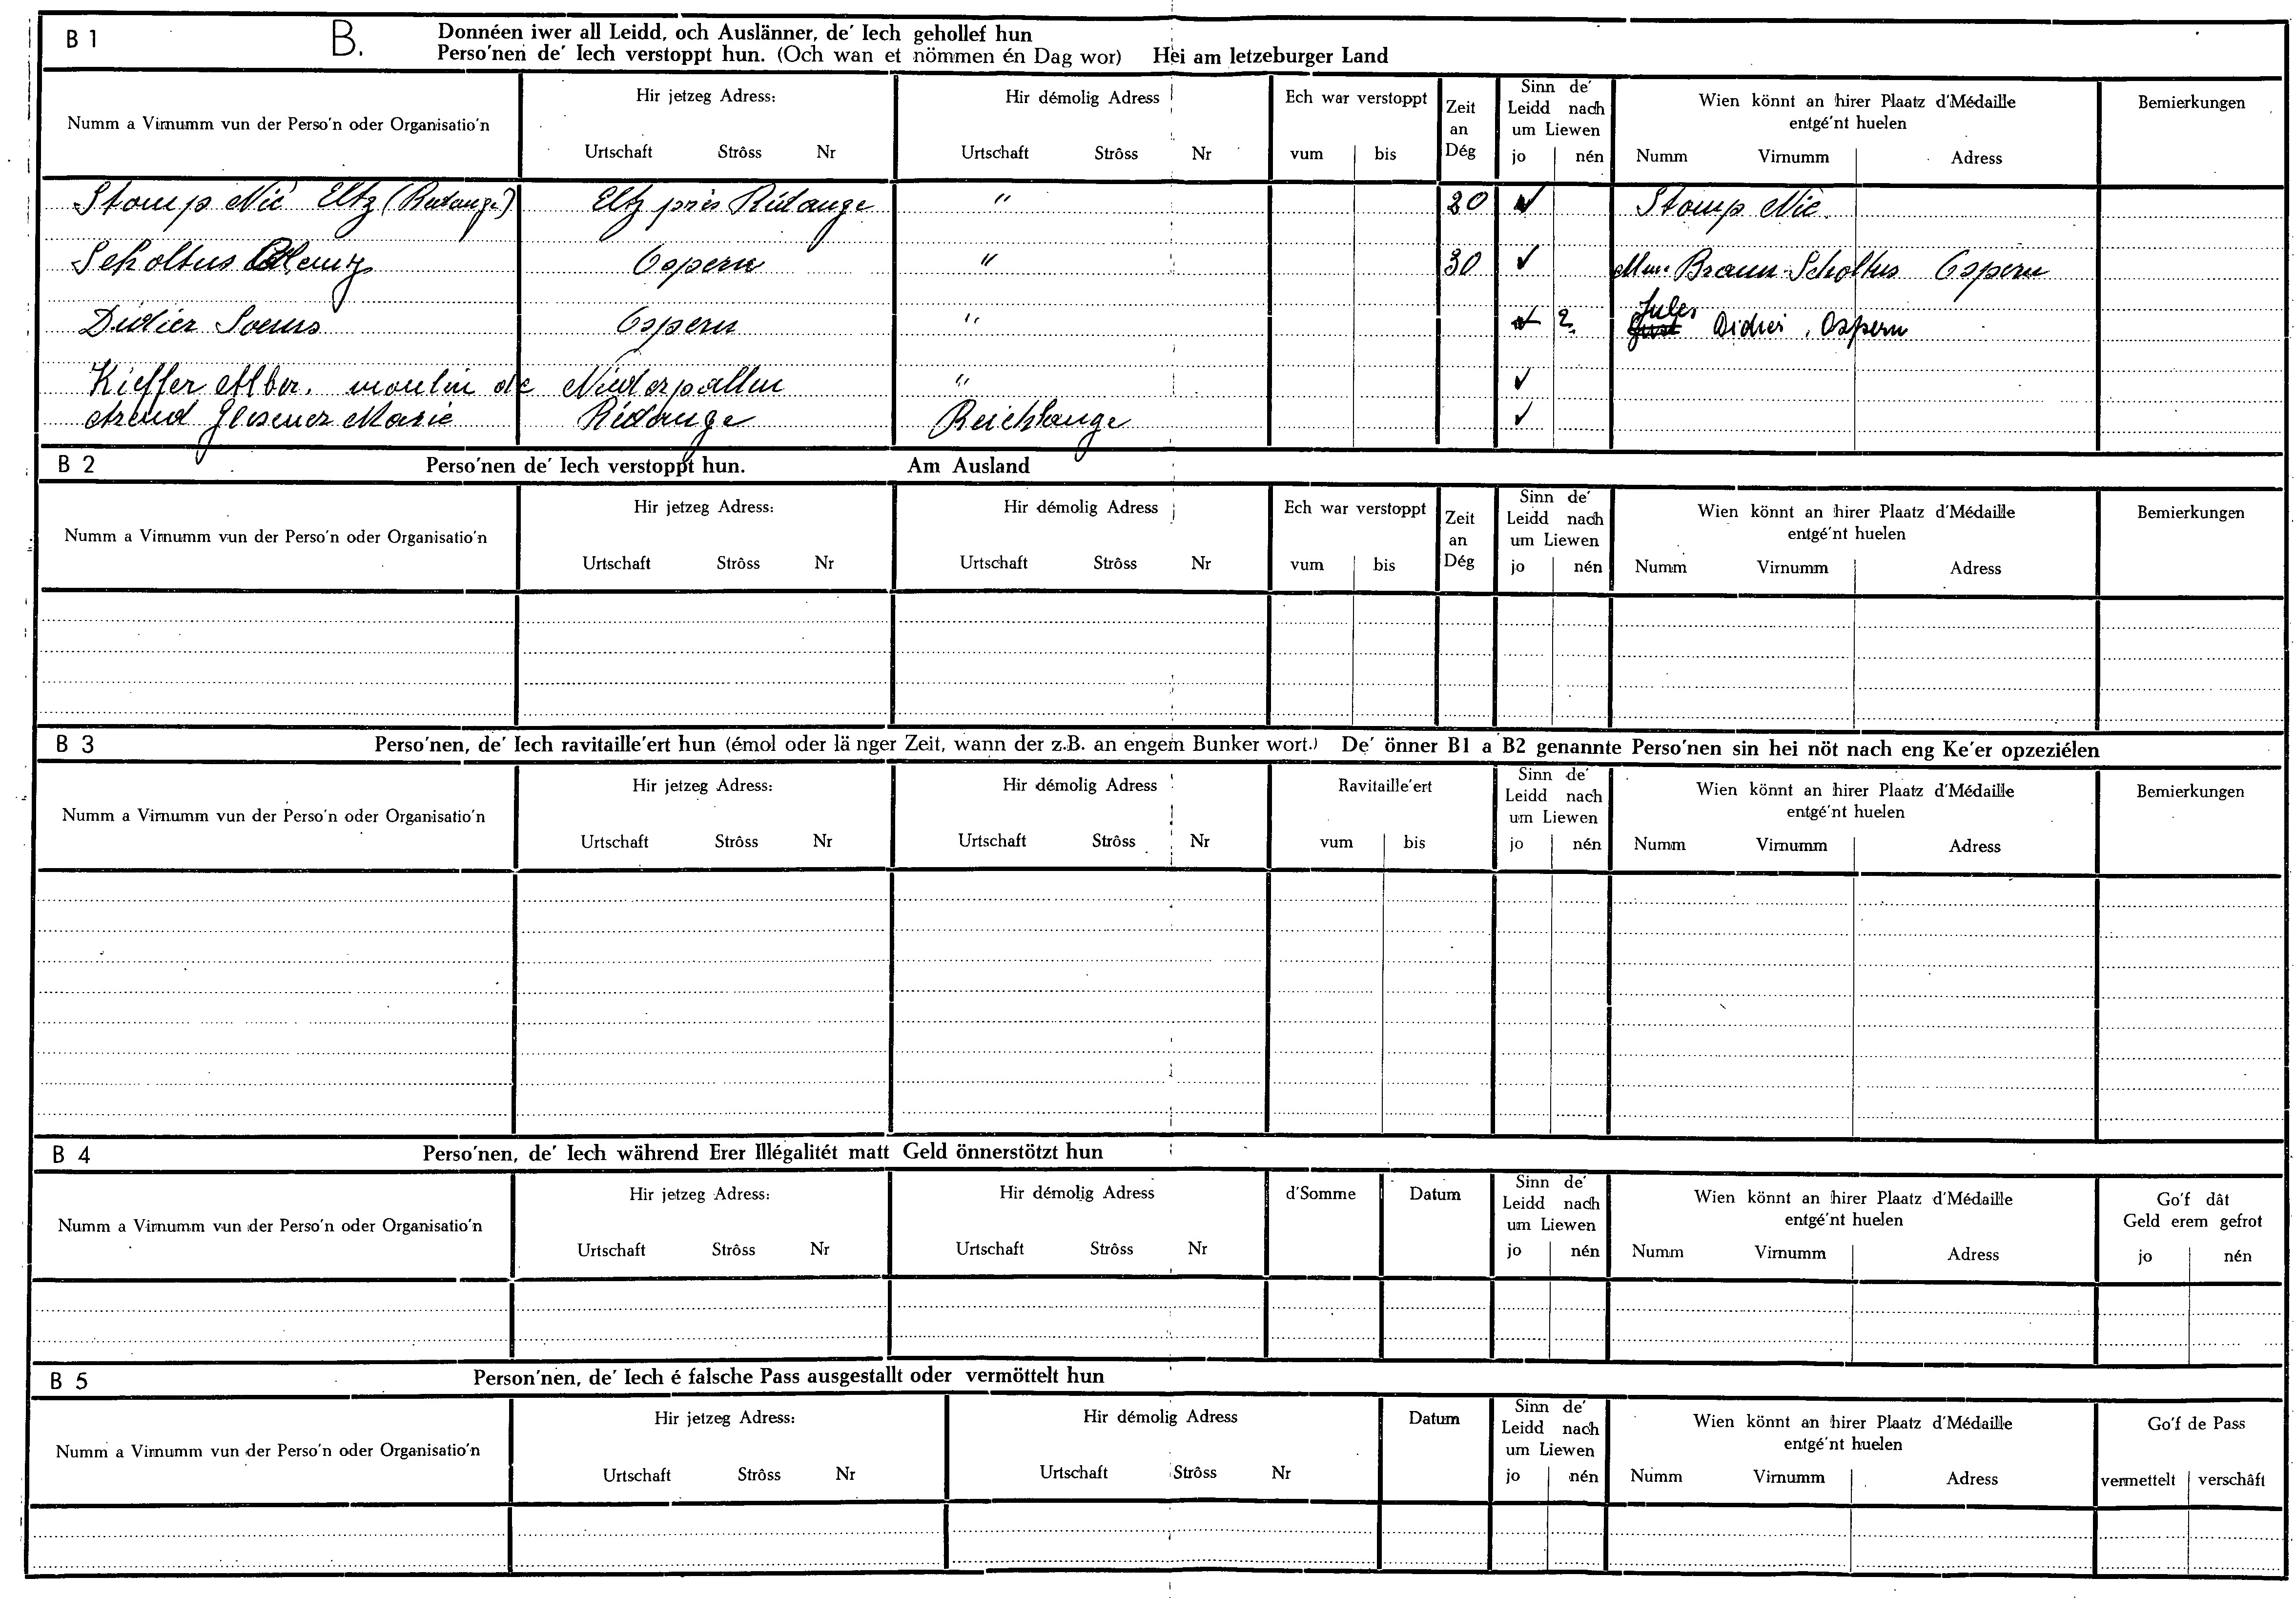 B 1 B. Donnéen iwer all Leidd, och Auslänner, de' Iech gehollef hun
Perso'nen de' Iech verstoppt hun. (Och wan et nömmen én Dag wor) Hei am letzeburger Land
Numm a Virnumm vun der Perso'n oder Organisatio'n
Hir jetzeg Adress:
Urtschaft Strôss Nr
Hir démolig Adress
Urtschaft Strôss Nr
Ech war verstoppt
vum bis
Zeit
an
Dég
Sinn de'
Leidd nach
um Liewen
jo nén
Wien könnt an hirer Plaatz d'Médaille
entgé'nt huelen
Numm Virnumm Adress
Bemierkungen
Stomp Nic Eltz (Redange) Eltz près Rédange " 30 ✓ Stomp Nic.
Scholtus Ospern " 30 ✓ Mme Braun-Scholtus Ospern
Didier Soeurs Ospern " ✓ 2 Jules Didier, Ospern
Kieffer Alber. moulin de Niederpallen " ✓
Arend Glesener Marie Rédange Reichlange ✓
B 2 Perso'nen de' Iech verstoppt hun. Am Ausland
Numm a Virnumm vun der Perso'n oder Organisatio'n
Hir jetzeg Adress:
Urtschaft Strôss Nr
Hir démolig Adress
Urtschaft Strôss Nr
Ech war verstoppt
vum bis
Zeit
an
Dég
Sinn de'
Leidd nach
um Liewen
jo nén
Wien könnt an hirer Plaatz d'Médaille
entgé'nt huelen
Numm Virnumm Adress
Bemierkungen
B 3 Perso'nen, de' Iech ravitaille'ert hun (émol oder länger Zeit, wann der z.B. an engem Bunker wort.) De' önner B1 a B2 genannte Perso'nen sin hei nöt nach eng Ke'er opzeziélen
Numm a Virnumm vun der Perso'n oder Organisatio'n
Hir jetzeg Adress:
Urtschaft Strôss Nr
Hir démolig Adress
Urtschaft Strôss Nr
Ravitaille'ert
vum bis
Sinn de'
Leidd nach
um Liewen
jo nén
Wien könnt an hirer Plaatz d'Médaille
entgé'nt huelen
Numm Virnumm Adress
Bemierkungen
B 4 Perso'nen, de' Iech während Erer Illégalitét matt Geld önnerstötzt hun
Numm a Virnumm vun der Perso'n oder Organisatio'n
Hir jetzeg Adress:
Urtschaft Strôss Nr
Hir démolig Adress
Urtschaft Strôss Nr
d'Somme
Datum
Sinn de'
Leidd nach
um Liewen
jo nén
Wien könnt an hirer Plaatz d'Médaille
entgé'nt huelen
Numm Virnumm Adress
Go'f dât
Geld erem gefrot
jo nén
B 5 Person'nen, de' Iech é falsche Pass ausgestallt oder vermöttelt hun
Numm a Virnumm vun der Perso'n oder Organisatio'n
Hir jetzeg Adress:
Urtschaft Strôss Nr
Hir démolig Adress
Urtschaft Strôss Nr
Datum
Sinn de'
Leidd nach
um Liewen
jo nén
Wien könnt an hirer Plaatz d'Médaille
entgé'nt huelen
Numm Virnumm Adress
Go'f de Pass
vermettelt verschâft